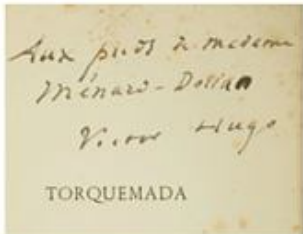 Aux pieds de madame
Ménard-Dorian
Victor Hugo
TORQUEMADA